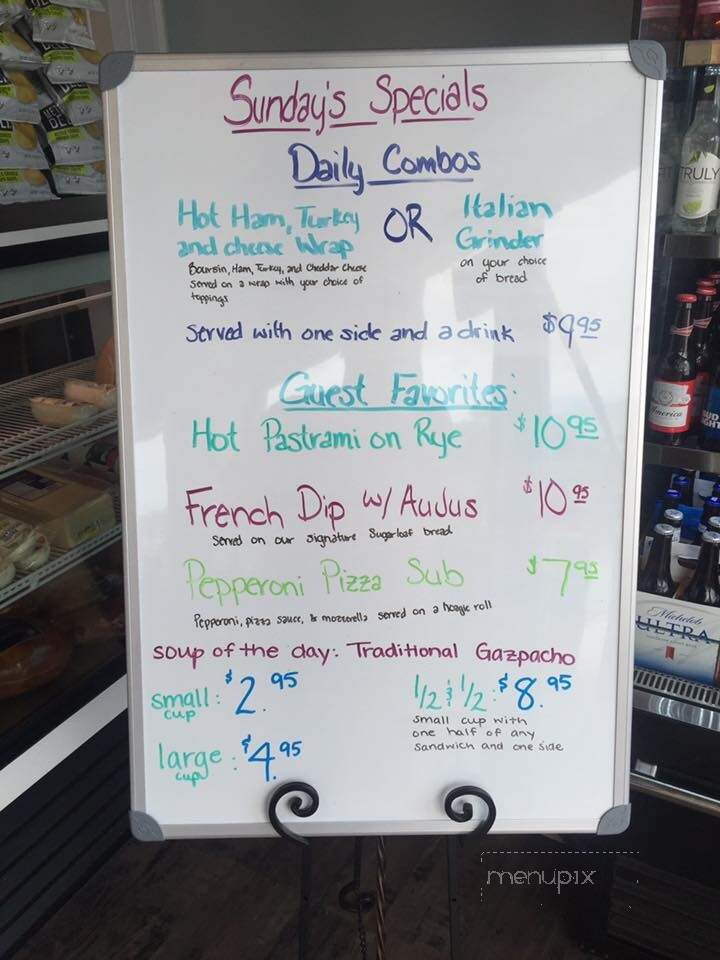 Sunday's Specials
Daily Combos
Hot Ham, Turkey and cheese Wrap
Boursin, Ham, Turkey, and Cheddar Cheese
served on a wrap with your choice of
toppings
OR
Italian
Grinder
on your choice
of bread
Served with one side and a drink $9.95
Guest Favorites:
Hot Pastrami on Rye $10.95
French Dip w/ AuJus $10.95
Served on our signature Sugarloaf bread
Pepperoni Pizza Sub $7.95
Pepperoni, pizza sauce, & mozzerella served on a hoagie roll
soup of the day: Traditional Gazpacho
small cup: $2.95
large cup: $4.95
1/2 & 1/2: $8.95
small cup with
one half of any
sandwich and one side
TRULY
America
BUD
LIGHT
Michelob
ULTRA
menupix